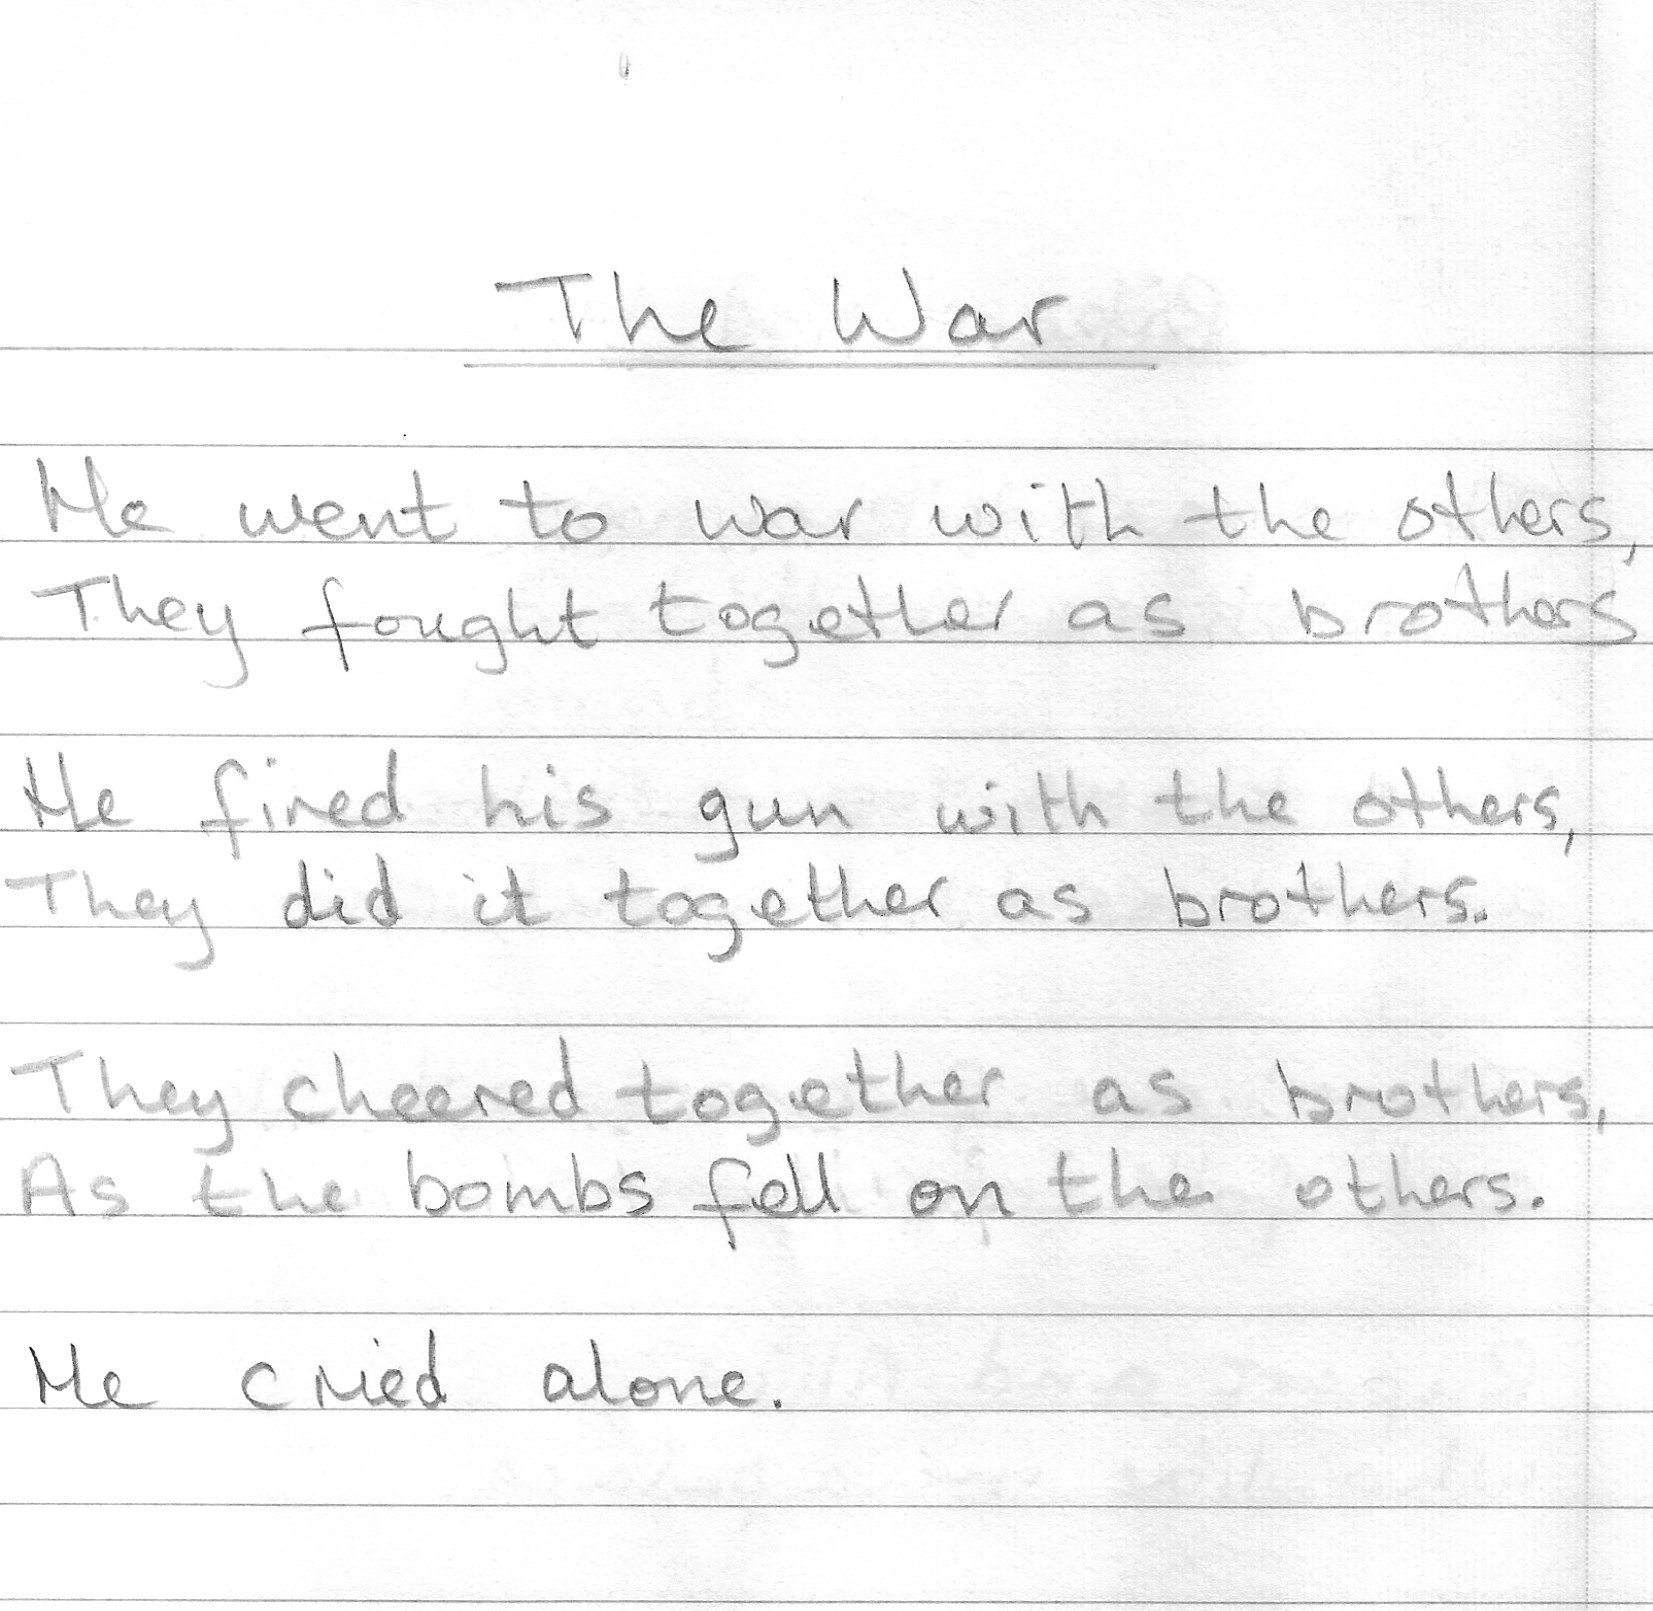 The War
He went to war with the others,
They fought together as brothers
He fired his gun with the others,
They did it together as brothers.
They cheered together as brothers,
As the bombs fell on the others.
He cried alone.